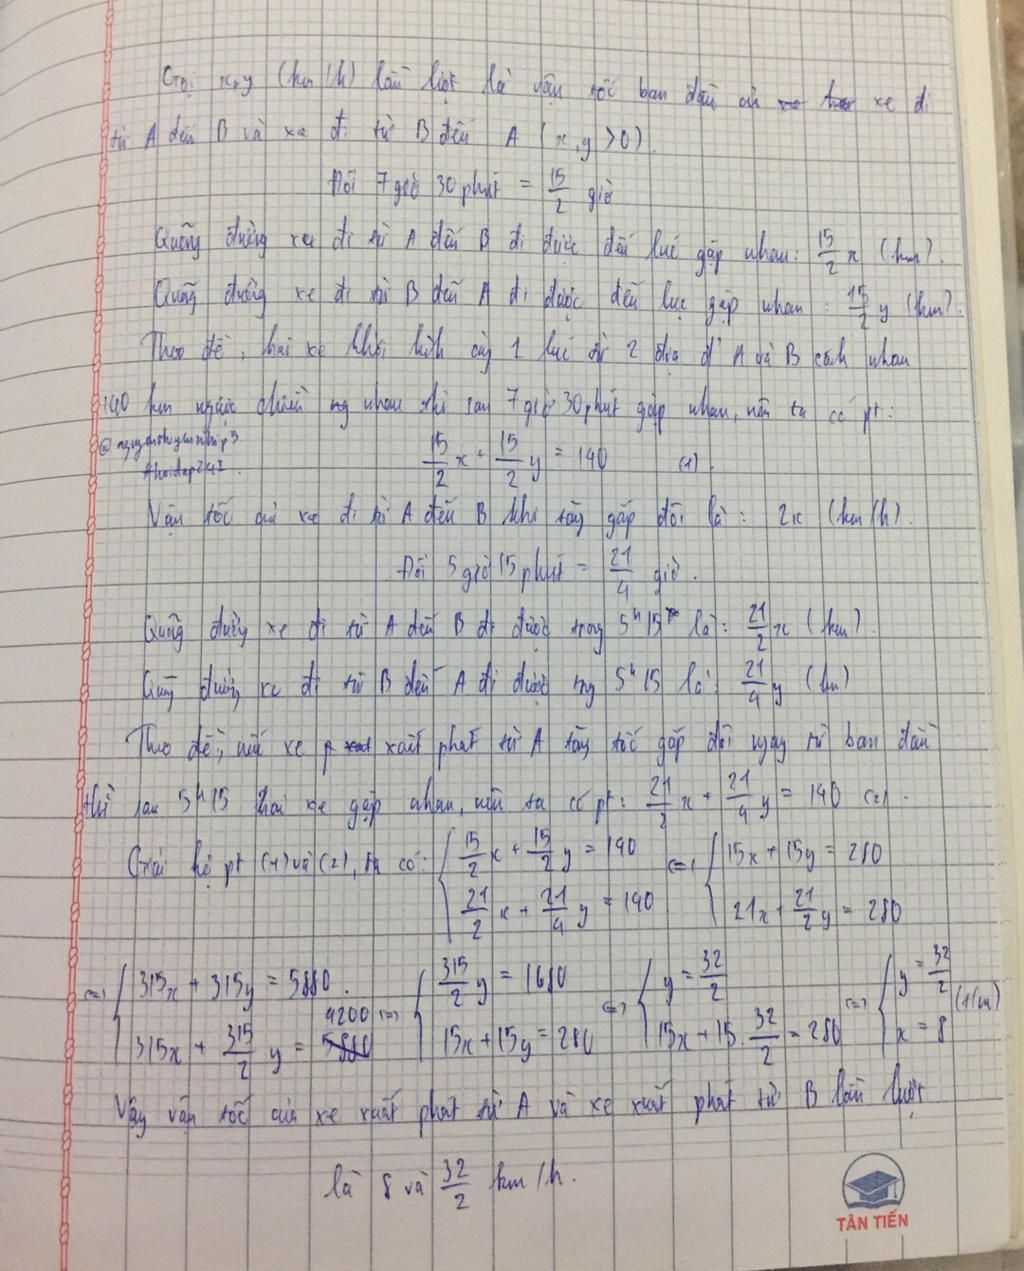 Gọi x, y (km/h) lần lượt là vận tốc ban đầu của xe đi
từ A đến B và xe đi từ B đến A (x,y >0).
Đổi 7 giờ 30 phút = 15/2 giờ
Quãng đường xe đi từ A đến B đi được đến lúc gặp nhau: 15/2 x (km).
Quãng đường xe đi từ B đến A đi được đến lúc gặp nhau: 15/2 y (km).
Theo đề, hai xe khởi hành cùng 1 lúc từ 2 địa đ' A và B cách nhau
140 km ngược chiều nhau thì sau 7 giờ 30 phút gặp nhau, nên ta có pt:
15/2 x + 15/2 y = 140 (1).
#hoidap247
Vận tốc của xe đi từ A đến B khi tăng gấp đôi là: 2x (km/h).
Đổi 5 giờ 15 phút = 21/4 giờ.
Quãng đường xe đi từ A đến B đi được trong 5h15p là: 21/2 x (km).
Quãng đường xe đi từ B đến A đi được trg 5h15 là: 21/4 y (km)
Theo đề, nếu xe xuất phát từ A tăng tốc gấp đôi ngay từ ban đầu
thì sau 5h15 hai xe gặp nhau, nên ta có pt: 21/2 x + 21/4 y = 140 (2).
Giải hệ pt (1) và (2), ta có: { 15/2 x + 15/2 y = 140 <=> { 15x + 15y = 280
21/2 x + 21/4 y = 140 21x + 21/2 y = 280
<=> { 315x + 315y = 5880. <=> { 315/2 y = 1680 <=> { y = 32/2 <=> { y = 32/2
315x + 315/2 y = 4200 15x + 15y = 280 15x + 15. 32/2 = 280 x = 8 (t/m)
Vậy vận tốc của xe xuất phát từ A và xe xuất phát từ B lần lượt
là 8 và 32/2 km/h.
TÂN TIẾN